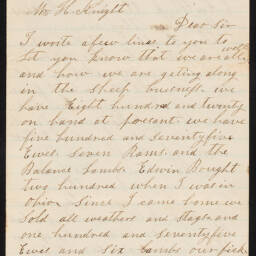 Mr H. Knight
Dear Sir
I wrote a few lines to you to
let you know that we are all well
and how we are getting along
in the sheep business. we
have Eight hundred and twenty
on hand at pressent. we have
five hundred and seventyfive
Ewes Seven Rams. and the
Balance Lambs Edwin Bought
two hundred when I was in
Ohio. Since I came home we
Sold all weathers and Stags and
one hundred and seventyfive
Ewes and Six Lambs our pick